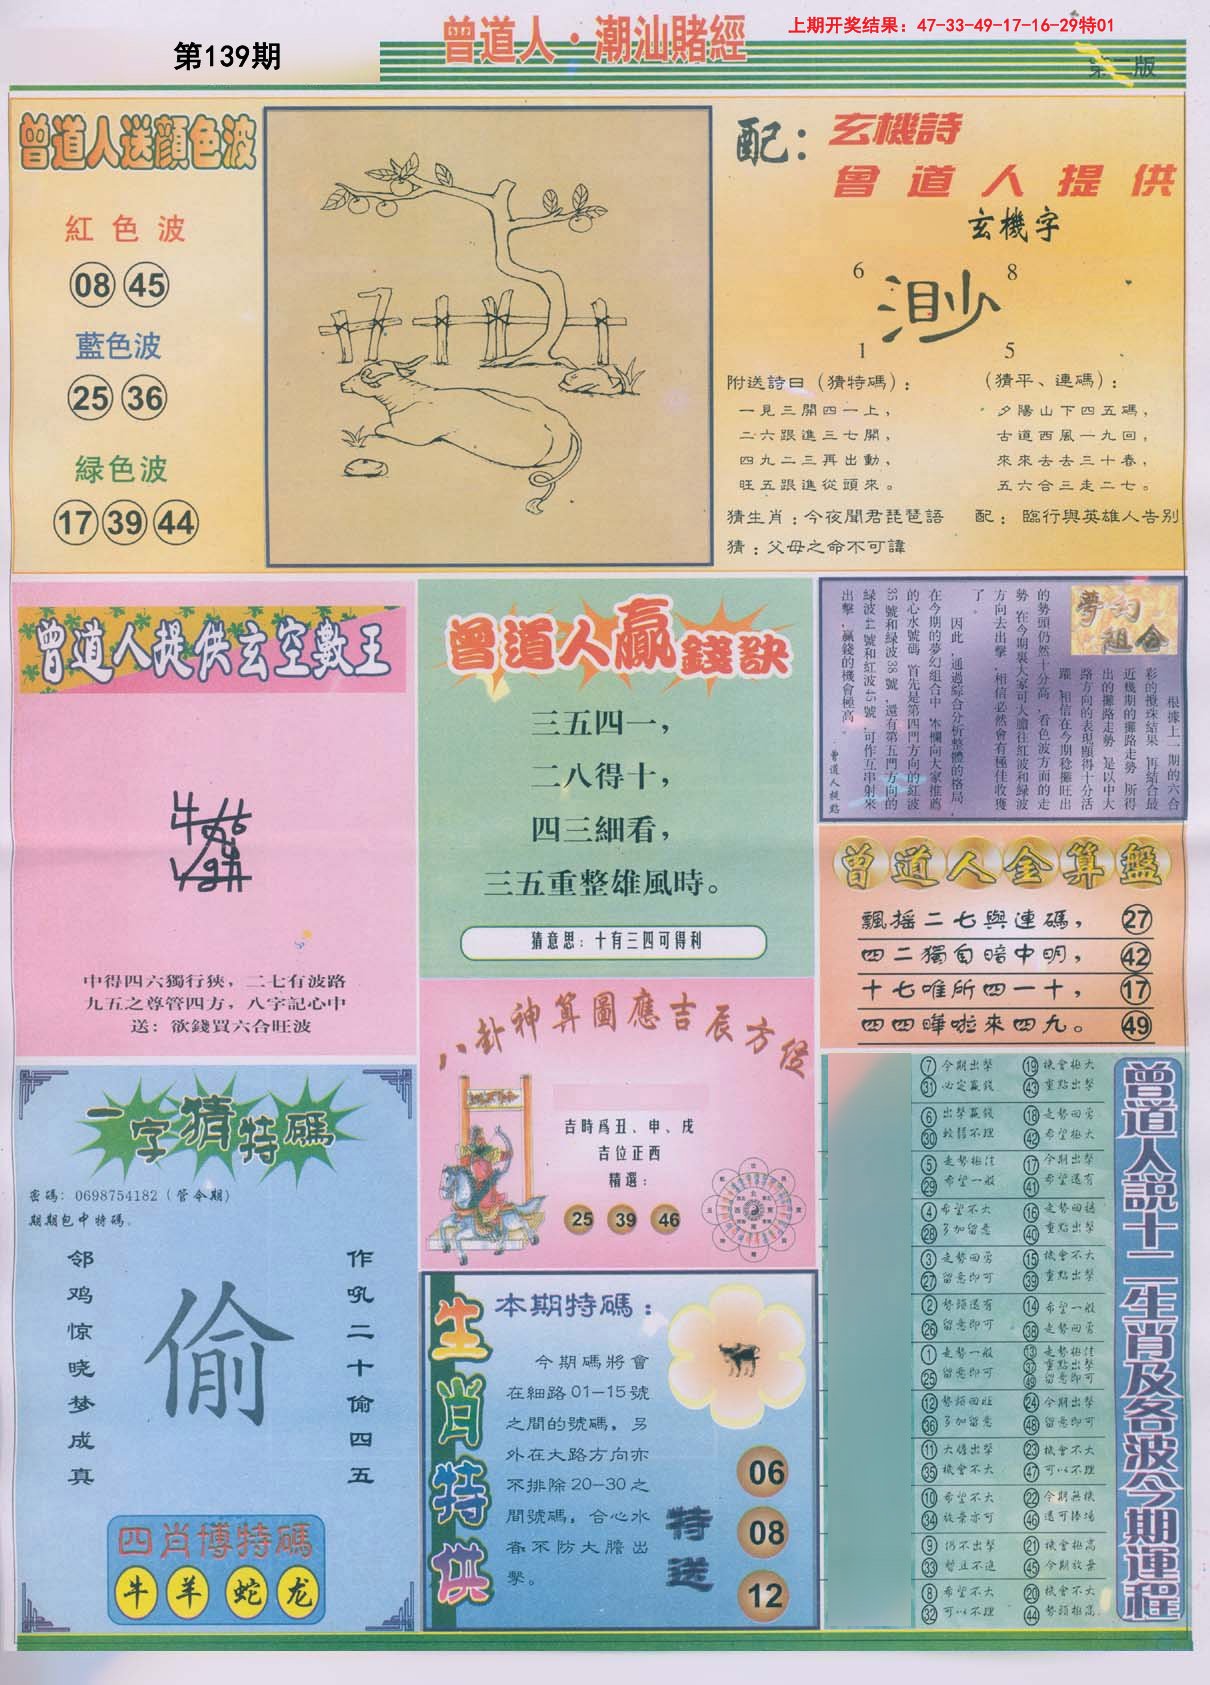 第139期
曾道人·潮汕賭經
上期开奖结果：47-33-49-17-16-29特01
第二版
曾道人送顔色波
紅色波
08 45
藍色波
25 36
緑色波
17 39 44
配：玄機詩
曾道人提供
玄機字
6 8
渺
1 5
附送詩曰（猜特碼）：
一見三開四一上，
二六跟進三七開，
四九二三再出動，
旺五跟進從頭來。
（猜平、連碼）：
夕陽山下四五碼，
古道西風一九回，
來來去去三十春，
五六合三走二七。
猜生肖：今夜聞君琵琶語
配：臨行與英雄人告别
猜：父母之命不可諱
曾道人提供玄空數王
中得四六獨行狹，二七有波路
九五之尊管四方，八字記心中
送：欲錢買六合旺波
曾道人贏錢訣
三五四一，
二八得十，
四三細看，
三五重整雄風時。
猜意思：十有三四可得利
夢幻組合
根據上一期的六合
彩的攪珠結果，再結合最
近機期的攤路走勢，所得
出的攤路走勢，是以中大
路方向的表現顯得十分活
躍，相信在今期稔攤旺出
的勢頭仍然十分高，看色波方面的走
勢，在今期裏大家可大膽往紅波和緑波
方向去出擊，相信必然會有極佳收獲
了。
因此，通過綜合分析整體的格局，
在今期的夢幻組合中，本欄向大家推薦
的心水號碼，首先是第四門方向的紅波
35號和緑波38號，還有第五門方向的
緑波44號和紅波45號，可作互串射來
出擊，贏錢的機會極高。
曾道人提點
曾道人金算盤
飄摇二七與連碼， 27
四二獨自暗中明， 42
十七唯所四一十， 17
四四嘩啦來四九。 49
八卦神算圖應吉辰方位
吉時爲丑、申、戌
吉位正西
精選：
25 39 46
一字猜特碼
密碼：0698754182（管今期）
期期包中特碼。
邻鸡惊晓梦成真
偷
作吼二十偷四五
四肖博特碼
牛 羊 蛇 龙
生肖特供
本期特碼：
今期碼將會
在細路01-15號
之間的號碼，另
外在大路方向亦
不排除20-30之
間號碼，合心水
者不防大膽出
擊。
特送
06
08
12
曾道人説十二生肖及各波今期運程
7 今期出擊 19 機會極大
31 必定贏錢 43 重點出擊
6 出擊贏錢 18 走勢回勇
30 較難不理 42 希望極大
5 走勢極佳 17 今期出擊
29 希望一般 41 希望還有
4 希望不大 16 走勢回穩
28 多加留意 40 重點出擊
3 走勢回勇 15 機會不大
27 留意即可 39 重點出擊
2 勢頭還有 14 希望一般
26 留意即可 38 走勢回勇
1 走勢一般 13 走勢極佳
25 留意即可 37 重點出擊
49 留意即可
12 勢頭回旺 24 今期出擊
36 多加留意 48 留意即可
11 大膽出擊 23 機會不大
35 機會不大 47 可以不理
10 希望不大 22 今期無機
34 放棄亦可 46 還可捧場
9 仍不出擊 21 機會極高
33 暫且不追 45 今期放棄
8 希望不大 20 機會不大
32 可以不理 44 勢頭極高